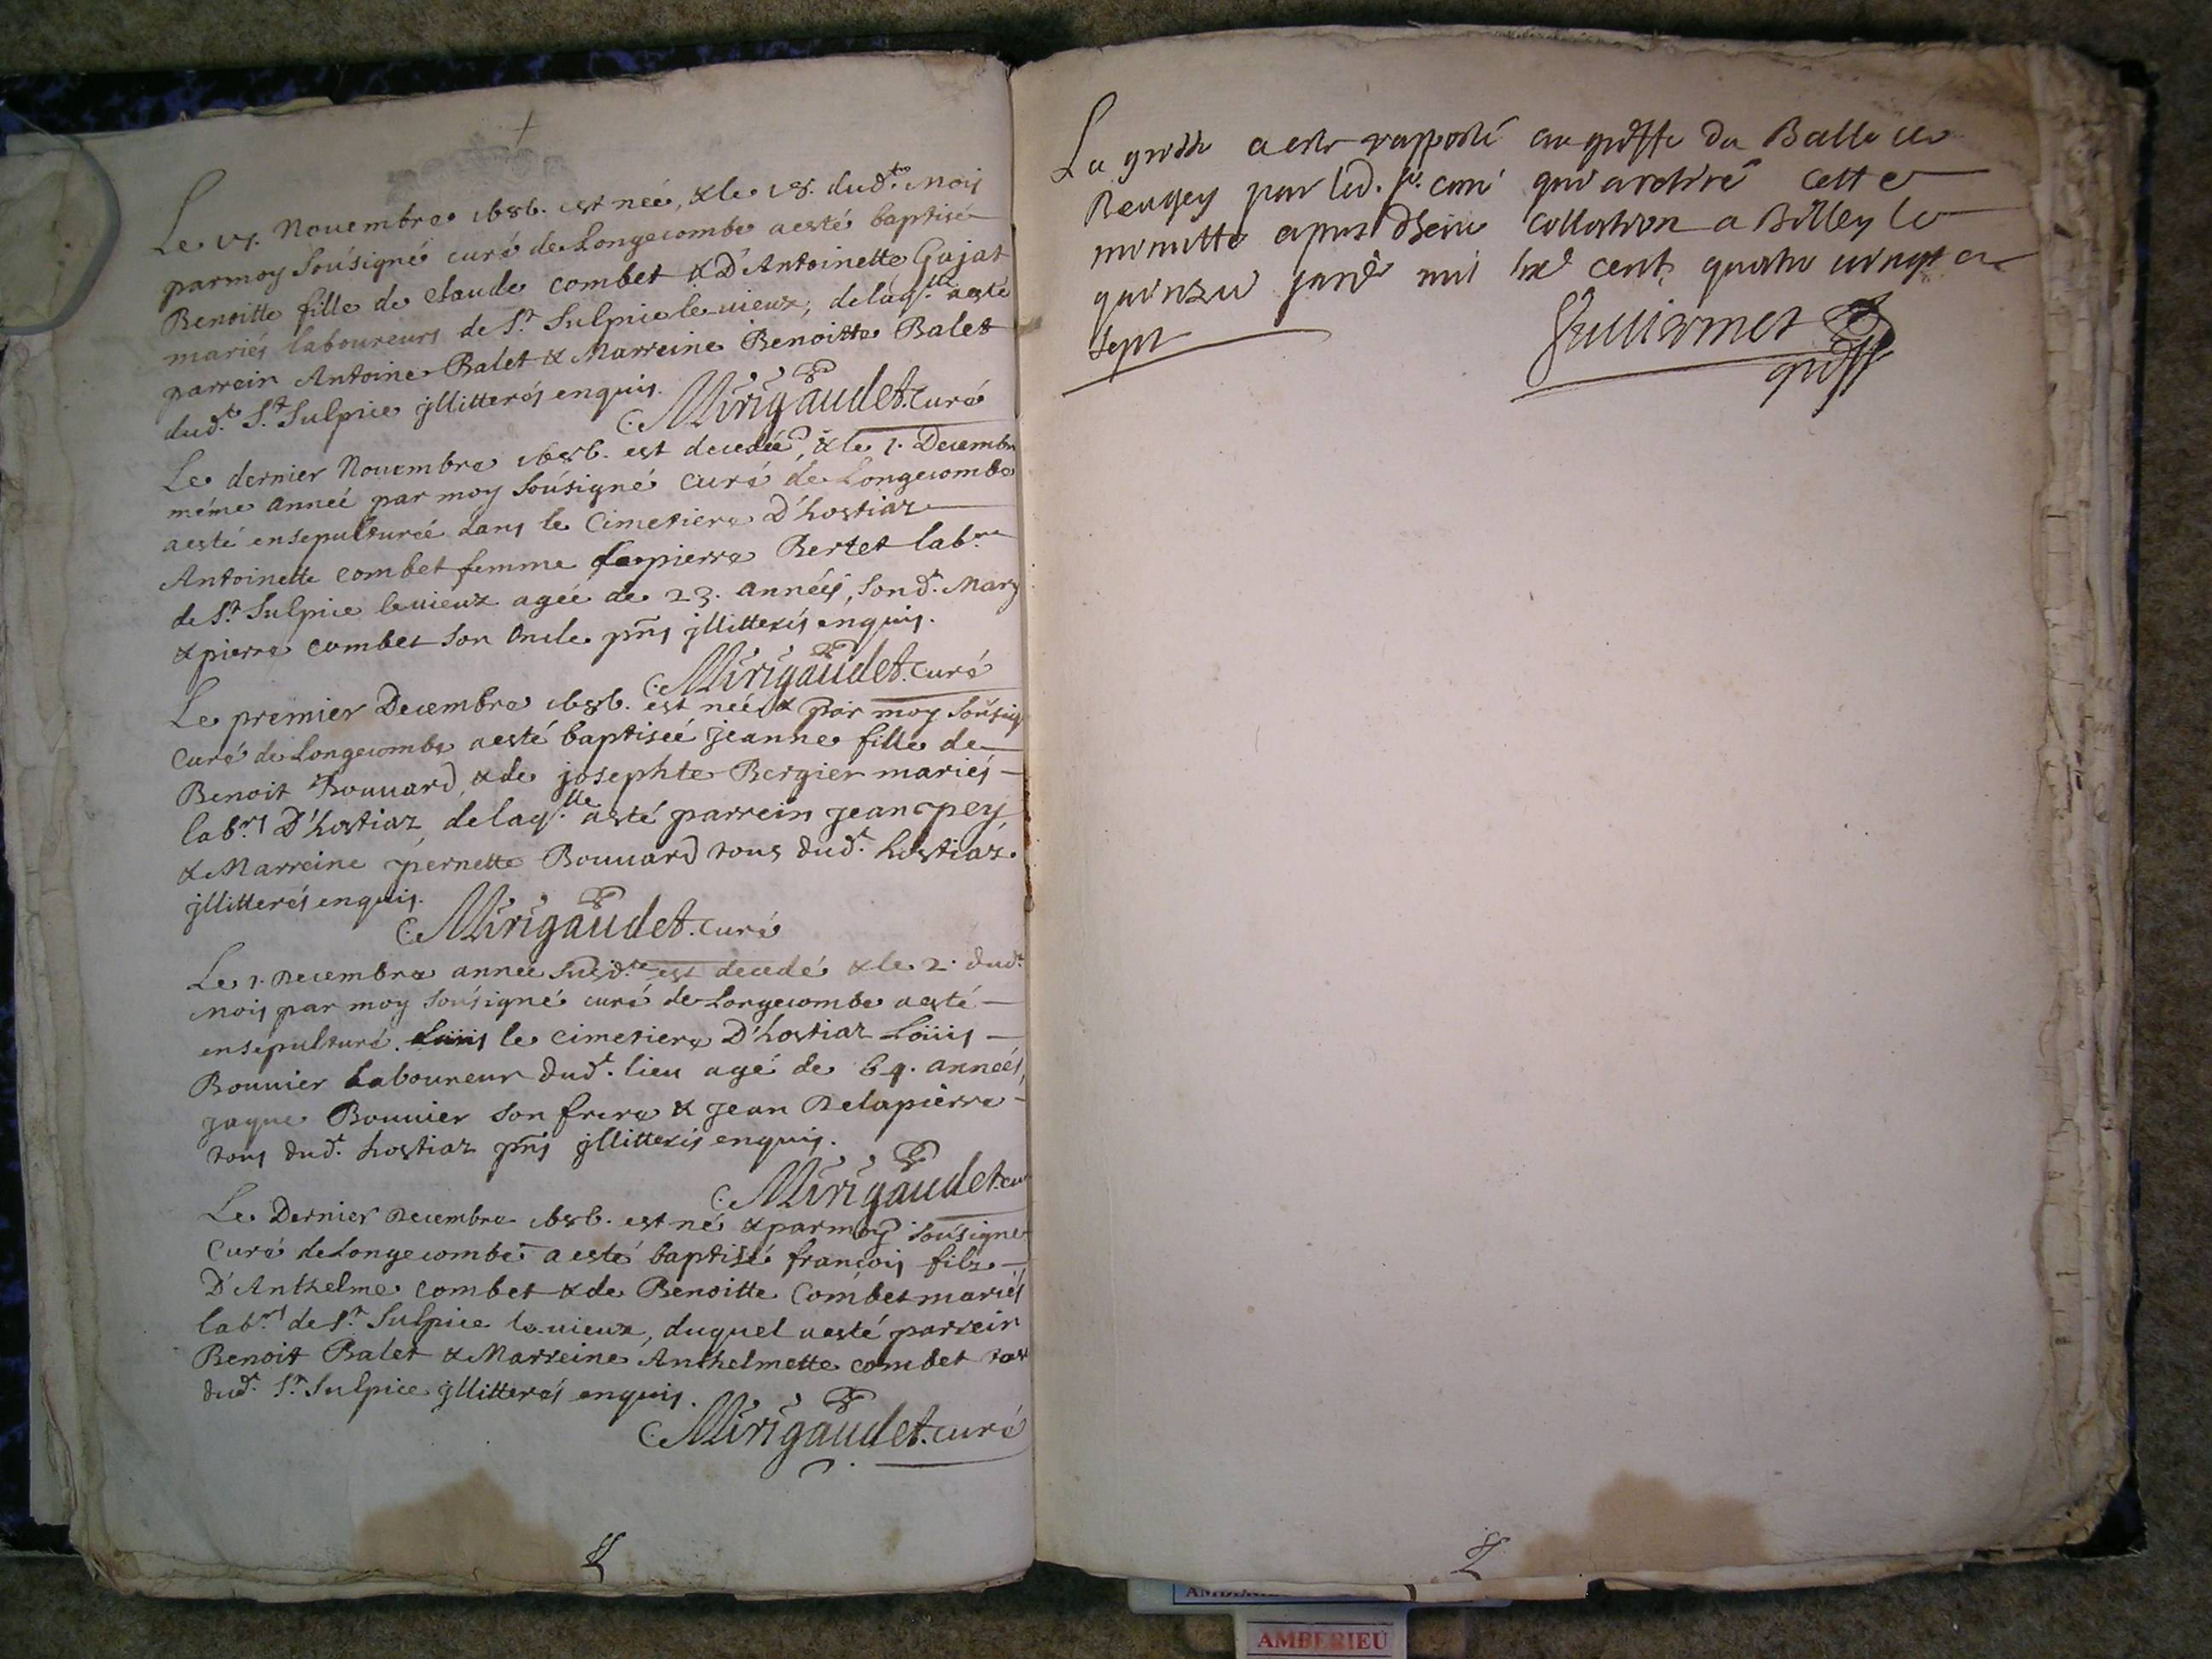 Le 17. Nouembre 1686. est neé, & le 18. dud.t mois
par moy Soúsigné curé de Longecombe a esté baptisé
Benoitte fille de claude combet & D'Antoinette Gajat
mariés laboureurs de S.t Sulpice le uieux, delaq.lle a esté
parrein Antoine Balet & Marreine Benoitte Balet
dud.t S.t Sulpice jllitterés enquis.
C. Mirigaudet. Curé
Le dernier Nouembre 1686. est decedeé, & le 1. Decembre
même anneé par moy Soúsigné Curé de Longecombe
a esté ensepultureé dans le Cimetiere D'hostiaz
Antoinette combet femme de pierre Bertet lab.r
de S.t Sulpice le uieux ageé de 23. anneés, Sond.t Mary
& pierre combet Son Oncle pñs jllitterés enquis.
C. Mirigaudet. Curé
Le premier Decembre 1686. est neé & par moy Soúsig
Curé de Longecombe a esté baptiseé jeanne fille de
Benoit Bouuard, & de josephte Bergier mariés
lab.rs D'hostiaz, delaq.lle a esté parrein jean pey,
& Marreine pernette Bouuard tous dud.t hostiaz.
jllitterés enquis.
C. Mirigaudet. Curé
Le 1. Decembre anneé Susd.te est decedé & le 2. dud.t
mois par moy Soúsigné curé de Longecombe a esté
ensepulturé. le cimetiere D'hostiaz Loüis
Bouuier Laboureur dud.t lieu agé de 64. anneés,
jaque Bouuier Son frere & jean Delapierre
tous dud.t hostiaz pñs jllitterés enquis.
C. Mirigaudet. cu
Le Dernier Decembre 1686. est né & par moy Soúsigné
Curé de Longecombe a esté baptisé françois filz
D'Anthelme combet & de Benoitte Combet mariés
lab.rs de S.t Sulpice le uieux, duquel a esté parrein
Benoit Balet & Marreine Anthelmette combet tous
dud.t S.t Sulpice jllitterés enquis.
C. Mirigaudet. Curé
La grosse a este rapporté au greffe du Balle de
Beugey par led. S.r curé qui a retiré cette
minutte apres dheue Collation a Belley le
quinze janv.r mil six cent quatre uingt
sept
Guillermet
greff
AMBERIEU